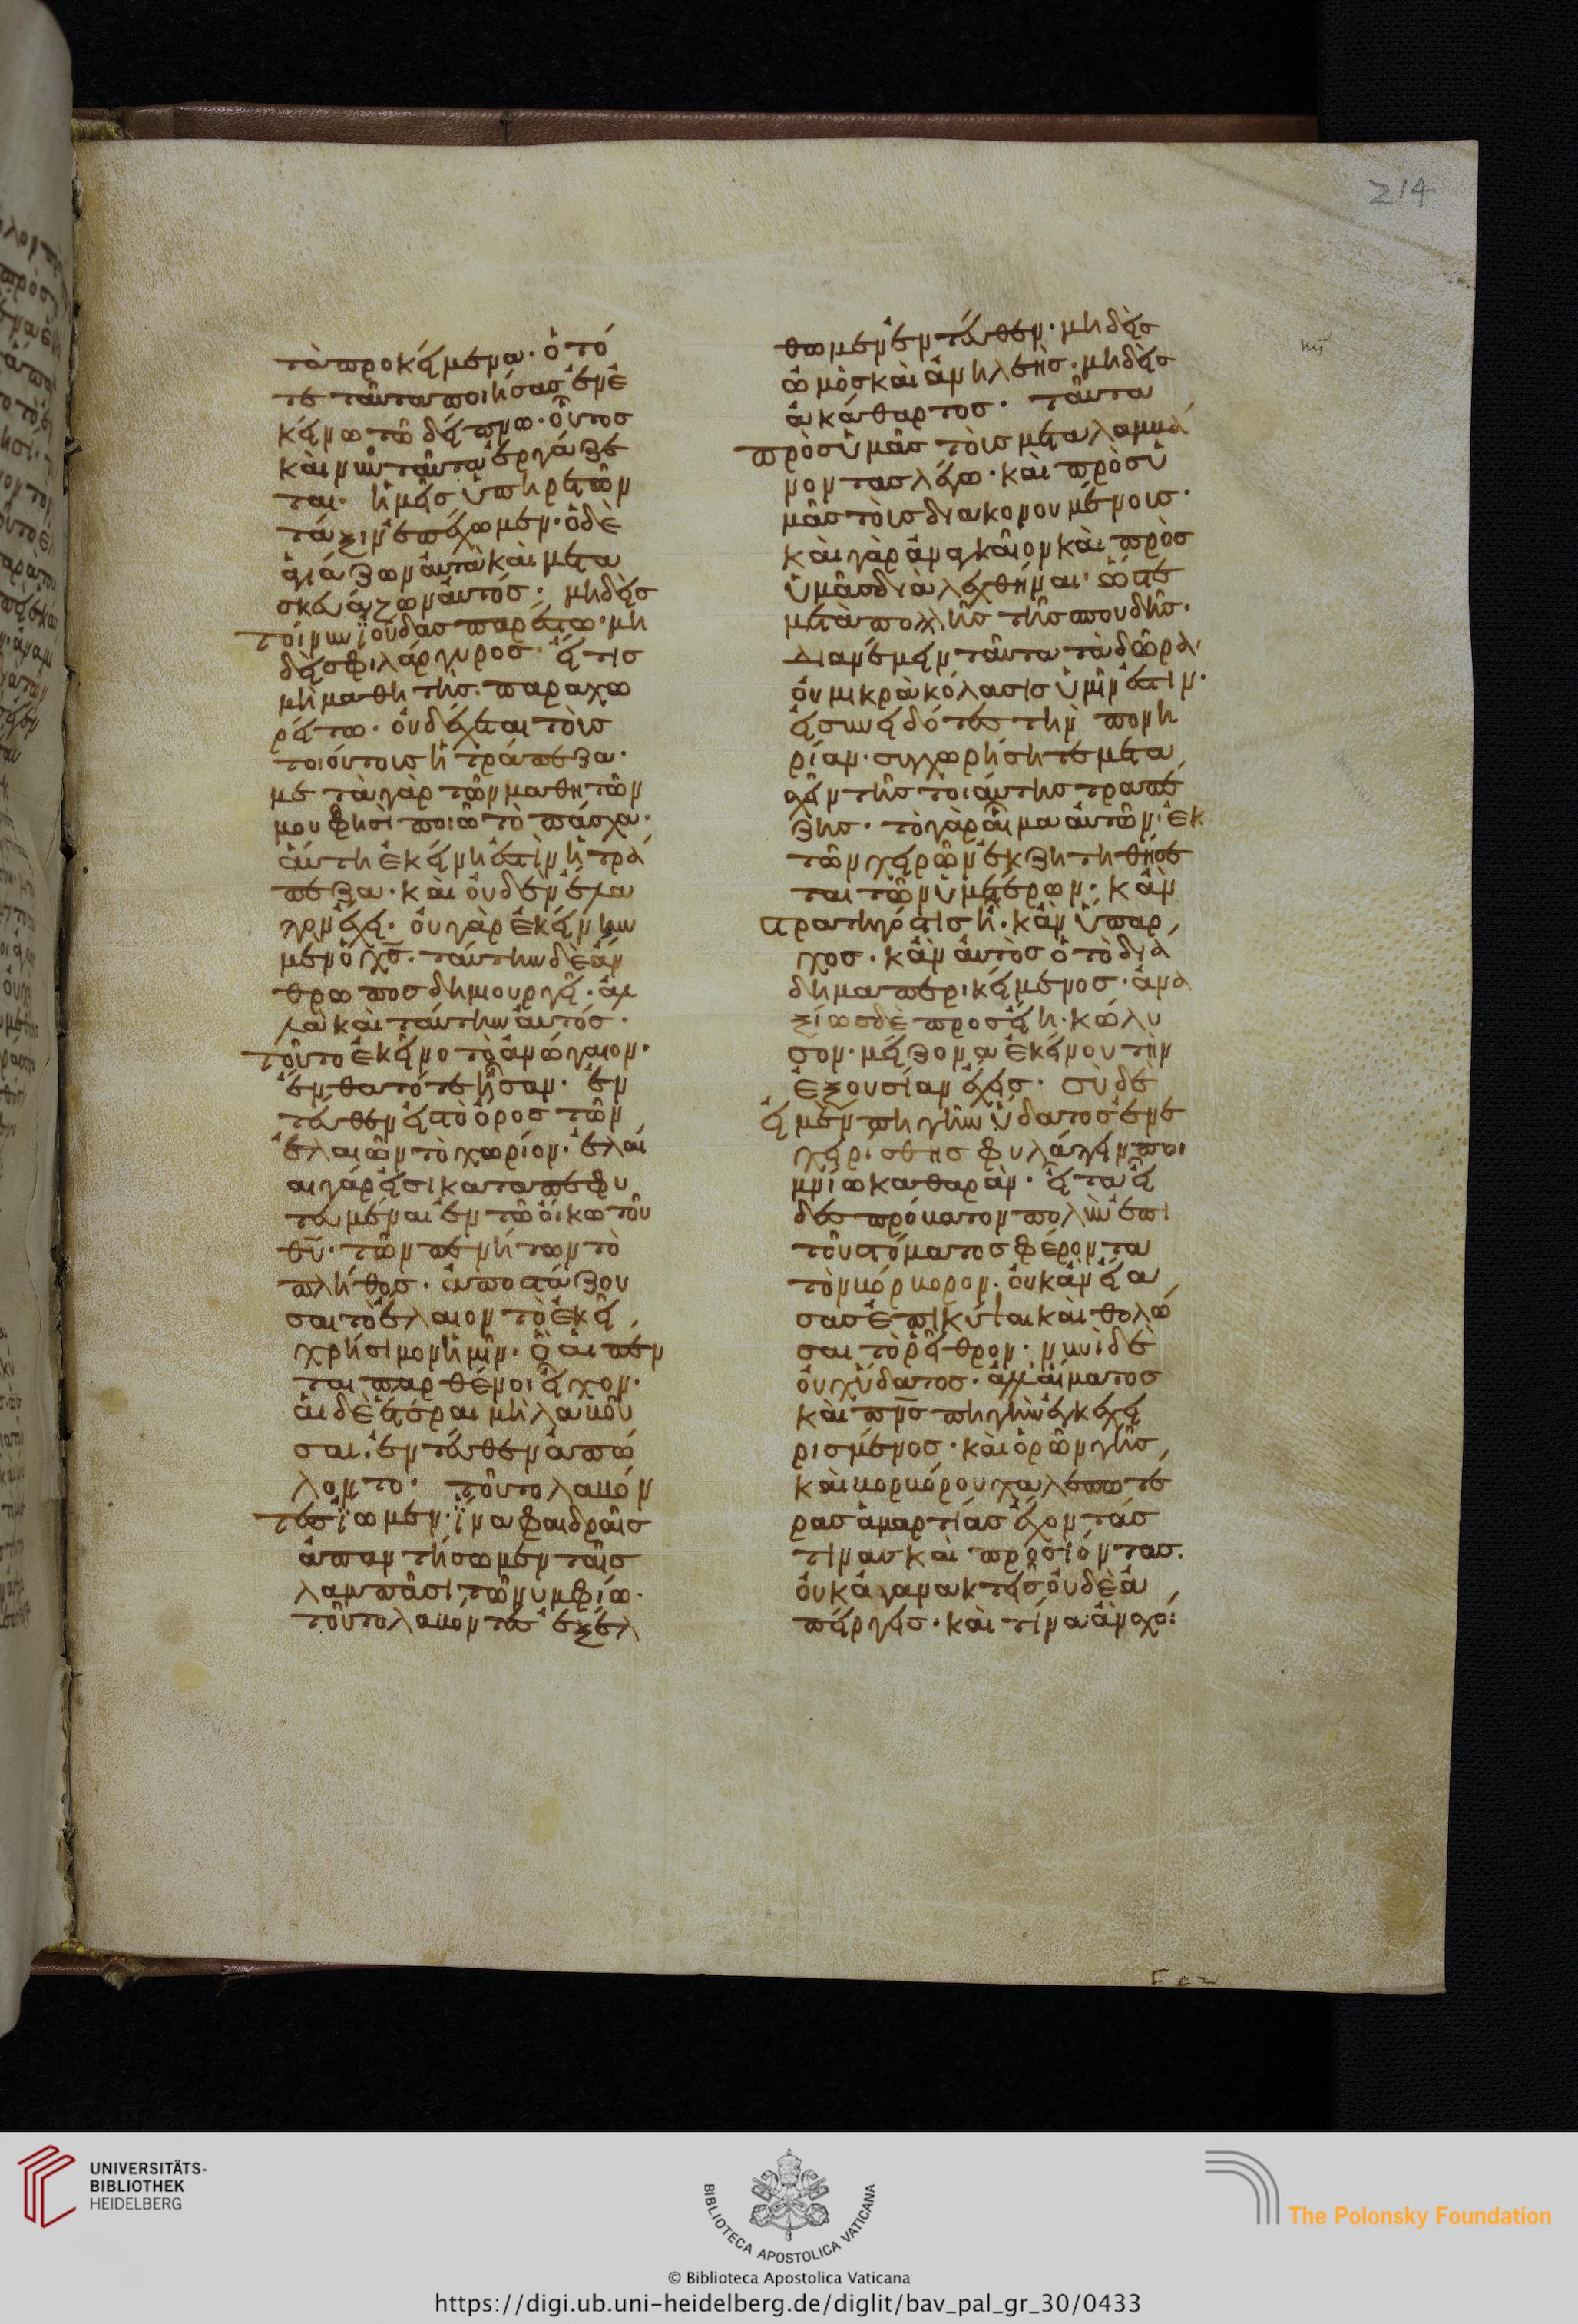 214
τὰ προκείμενα· ὁ τό
τε ταῦτα ποιήσας ἐν ἐ
κείνω τῶ δείπνω· οὗτος
καὶ νῦν ταῦτα ἐργάζε
ται· ἡμεῖς ὑπηρετῶν
τάξιν ἐπέχωμεν· ὁ δὲ
ἁγιάζων αὐτὰ καὶ μετα
σκευάζων αὐτός· μηδεὶς
τοίνυν ἰούδας παρέστω· μη
δεὶς φιλάργυρος· εἴ τις
μὴ μαθητὴς· παραχω
ρείτω· οὐ δέχεται τοὺς
τοιούτους ἡ τράπεζα·
μετὰ γὰρ τῶν μαθητῶν
μου φησὶ ποιῶ τὸ πάσχα·
αὕτη ἐκείνη ἐστὶν ἡ τρά
πεζα· καὶ οὐδὲν ἔλατ
τον ἔχει· οὐ γὰρ ἐκείνην
μὲν ὁ χς̄· ταύτην δὲ ἄν
θρωπος δημιουργεῖ· ἀλ
λὰ καὶ ταύτην αὐτός·
τοῦτο ἐκεῖνο τὸ ἀνώγαιον·
ἔνθα τότε ἦσαν· ἐν
τεῦθεν εἰς τὸ ὄρος τῶν
ἐλαιῶν τὸ χωρίον· ἐλαῖ
αι γάρ εἰσι καταπεφυ
τευμέναι ἐν τῶ οἴκω τοῦ
θῡ· τῶν πενήτων τὸ
πλῆθος· ἀποστάζου
σαι τὸ ἔλαιον τὸ ἐκεῖ
χρήσιμον ἡμῖν· ὃ αἱ πέν
ται παρθένοι εἶχον·
αἱ δὲ ἕτεραι μὴ λαβοῦ
σαι ἐντεῦθεν ἀπώ
λοντο· τοῦτο λαβόν
τες ἴωμεν· ἵνα φαιδραῖς
ἀπαντήσωμεν ταῖς
λαμπάσι τῶ νυμφίω·
τοῦτο λαβόντες ἐξέλ
θωμεν ἐντεῦθεν· μηδεὶς
ὠμὸς καὶ ἀνηλεὴς· μηδεὶς
ἀκάθαρτος· ταῦτα
πρὸς ὑμᾶς τοὺς μεταλαμβά
νοντας λέγω· καὶ πρὸς ὑ
μᾶς τοὺς διακονουμένους·
καὶ γὰρ ἀναγκαῖον καὶ πρὸς
ὑμᾶς διαλεχθῆναι· ὥστε
μετὰ πολλῆς τῆς σπουδῆς·
διανέμειν ταῦτα τὰ δῶρα·
οὐ μικρὰ κόλασις ὑμῖν ἐστιν·
εἰ συνειδότες τινὶ πονη
ρίαν· συγχωρήσητε μετα
σχεῖν τῆς τοιαύτης τραπέ
ζης· τὸ γὰρ αἷμα αὐτῶν· ἐκ
τῶν χειρῶν ἐκζητηθήσε
ται τῶν ὑμετέρων· κἂν
στρατηγός τις ἦ· κἂν ὕπαρ
χος· κἂν αὐτὸς ὁ τὸ διά
δημα περικείμενος· ἀνα
ξίως δὲ προσείη· κώλυ
σον· μείζονα ἐκείνου τὴν
ἐξουσίαν ἔχεις· σὺ δὲ
εἰ μὲν πηγὴν ὕδατος ἐνε
χειρίσθης φυλάττειν ποι
μνίω καθαράν· εἶτα εἶ
δες πρόβατον πολὺν ἐπὶ
τοῦ στόματος φέρον τα
τὸν βόρβορον· οὐκ ἂν εἴα
σας ἐπικῦψαι καὶ θολῶ
σαι τὸ ῥεῖθρον· νυνὶ δὲ
οὐχ ὕδατος· ἀλλ' αἵματος
καὶ πν̄ς πηγὴν ἐγκεχει
ρισμένος· καὶ ὁρῶν γῆς
καὶ βορβόρου χαλεπωτέ
ρας ἁμαρτίας ἔχοντάς
τινας καὶ προσιόντας·
οὐκ ἀγανακτεῖς οὐδὲ ἀ
πείργεις· καὶ τίνα ἂν σχοί
UNIVERSITÄTS-
BIBLIOTHEK
HEIDELBERG
BIBLIOTECA APOSTOLICA VATICANA
© Biblioteca Apostolica Vaticana
The Polonsky Foundation
https://digi.ub.uni-heidelberg.de/diglit/bav_pal_gr_30/0433